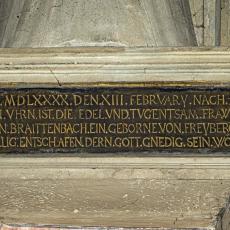 . MDLXXXX. DEN. XIII. FEBRVARY. NACH.
VHRN. IST. DIE. EDEL. VND. TVGENTSAM. FRAV
N. BRAITTENBACH. EIN. GEBORNE. VON. FREYBERG
LIG. ENTSCHAFEN. DERN. GOTT. GNEDIG. SEIN. WO